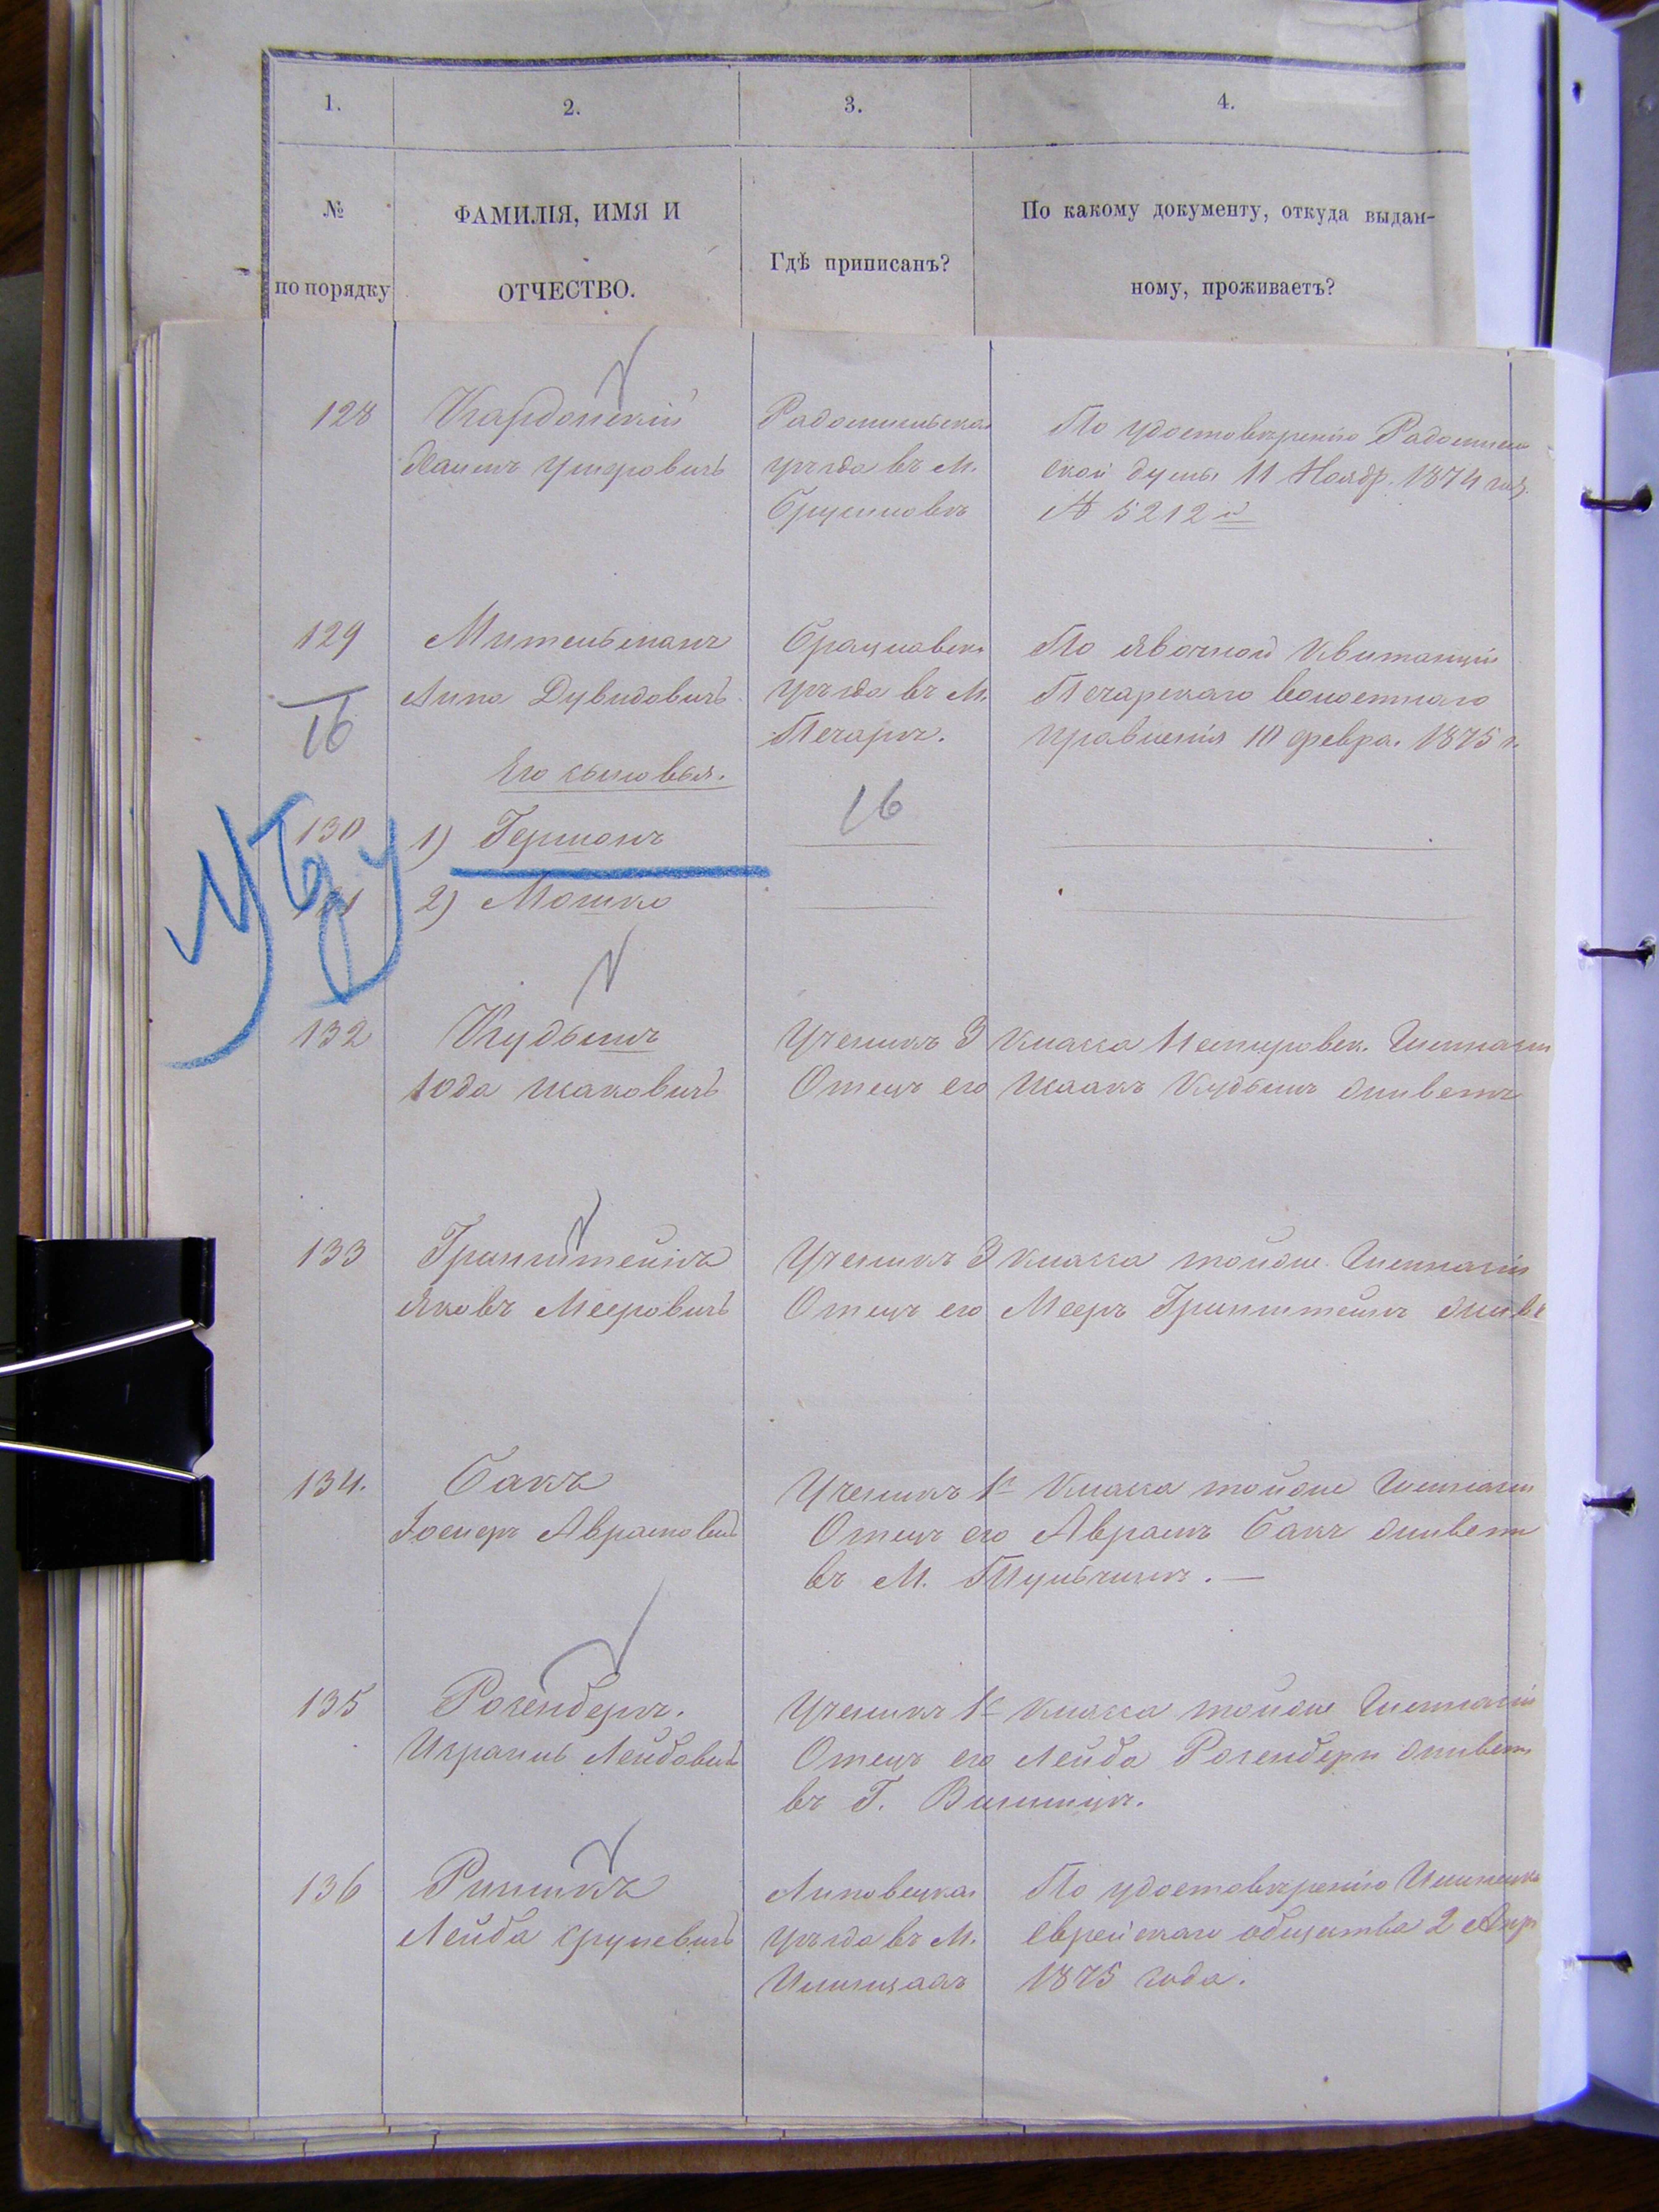 1.
2.
3.
4.
№
по порядку
ФАМИЛІЯ, ИМЯ И
ОТЧЕСТВО.
Гдѣ приписанъ?
По какому документу, откуда выдан-
ному, проживаетъ?
128
Кардонскій
Хаимъ Умеровичъ
Радомысльска
уѣзда въ М.
Брусиловѣ
По удостовѣренію Радомысль
ской думы 11 Ноябр. 1874 год.
№ 5212й
129
Мительманъ
Липа Дувидовичъ
Брацлавск.
уѣзда въ М.
Печарѣ.
По явочной квитанціи
Печарскаго волостнаго
правленія 10 февра. 1875 г.
16
Его сыновья.
130
1) Гершонъ
16
2) Мошко
132
Кудышъ
Юда Исаковичъ
Ученикъ 3 класса Немировск. Гимназіи
Отецъ его Исаакъ Кудышъ живетъ
133
Гринштейнъ
Яковъ Мееровичъ
Ученикъ 3 класса тойже Гимназіи
Отецъ его Мееръ Гринштейнъ живе
134.
Бакъ
Іосифъ Аврамович
Ученикъ 1го класса тойже Гимназіи
Отецъ его Аврамъ Бакъ живетъ
въ М. Тульчинѣ. —
135
Розенберг.
Израиль Лейбович
Ученикъ 1го класса тойже Гимназіи
Отецъ его Лейба Розенберг живетъ
въ Г. Винницѣ.
136
Ринникъ
Лейба Срулевичъ
Липовецкаг
Уѣзда въ М.
Илинцахъ
По удостовѣренію Илинецка
Еврейскаго общества 2 Апр
1875 года.